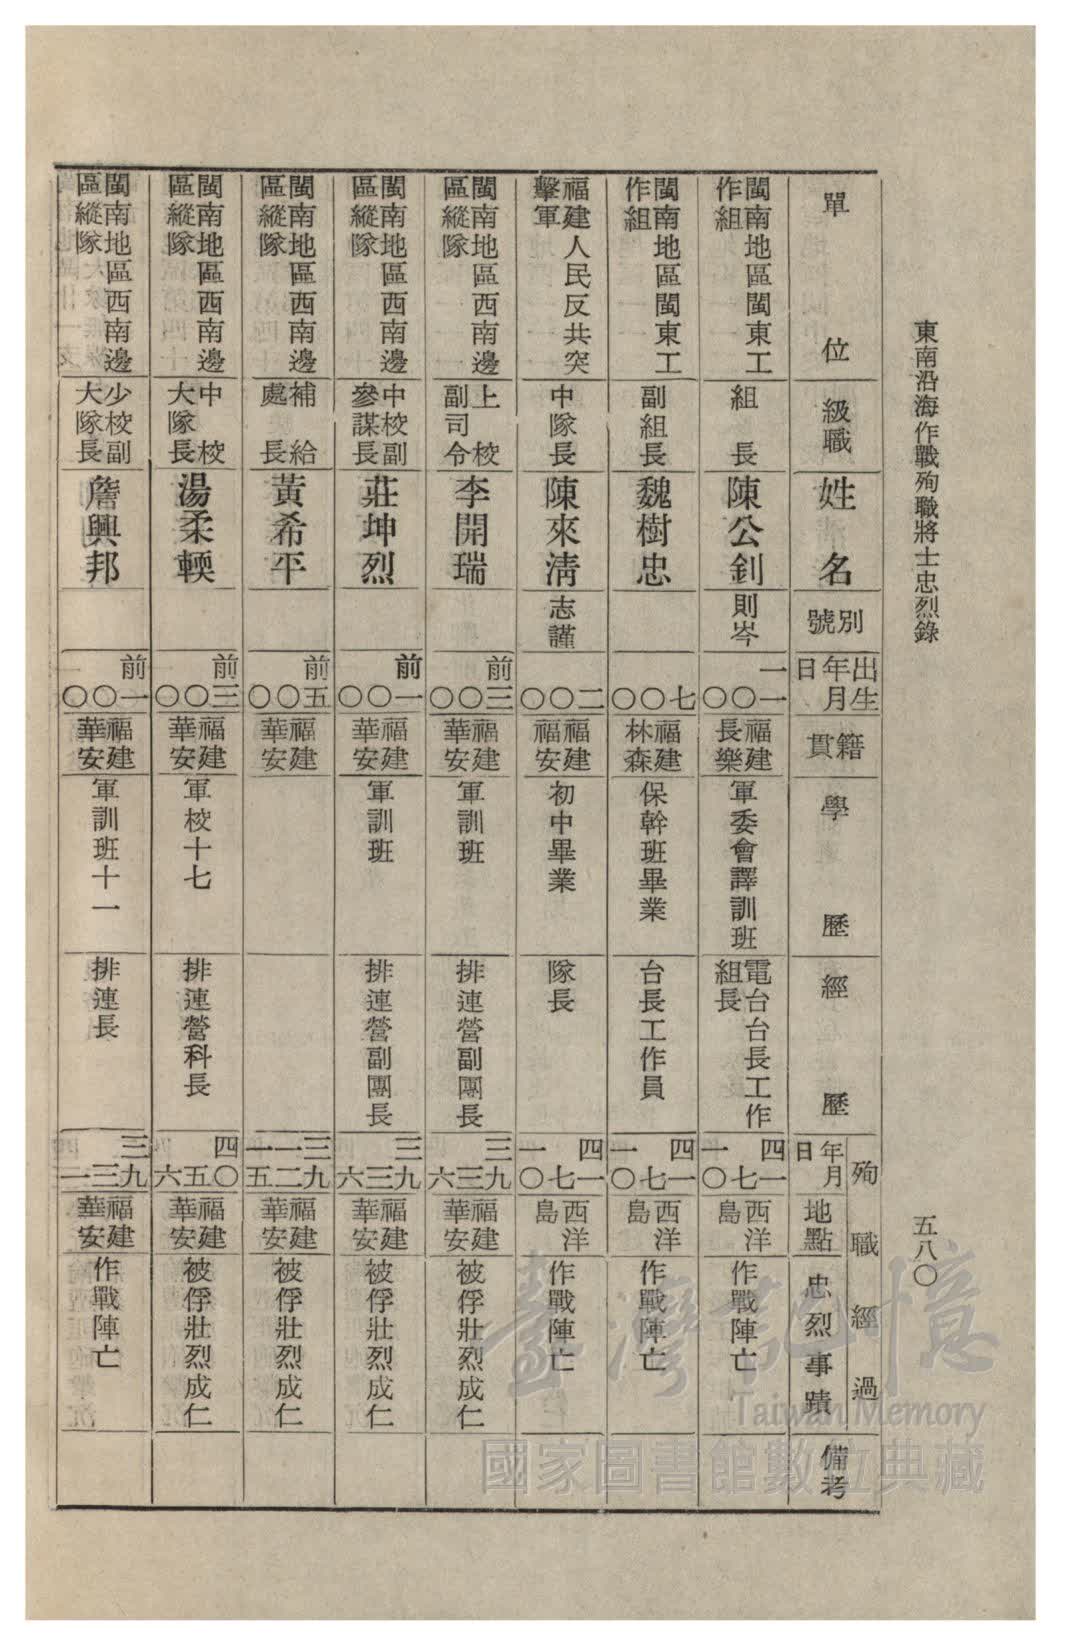 東南沿海作戰殉職將士忠烈錄
五八〇
單位
級職
姓名
別號
出生年月日
籍貫
學歷
經歷
殉職經過
年月日
地點
忠烈事蹟
備考
閩南地區閩東工
作組
組長
陳公釗
則岑
一一
〇
〇
福建
長樂
軍委會譯訓班
電台台長工作
組長
四一
七
一〇
西洋
島
作戰陣亡
閩南地區閩東工
作組
副組長
魏樹忠
七
〇
〇
福建
林森
保幹班畢業
台長工作員
四一
七
一〇
西洋
島
作戰陣亡
福建人民反共突
擊軍
中隊長
陳來淸
志謹
二
〇
〇
福建
福安
初中畢業
隊長
四一
七
一〇
西洋
島
作戰陣亡
閩南地區西南邊
區縱隊
上校
副司令
李開瑞
前三
〇
〇
福建
華安
軍訓班
排連營副團長
三九
三
六
福建
華安
被俘壯烈成仁
閩南地區西南邊
區縱隊
中校副
參謀長
莊坤烈
前一
〇
〇
福建
華安
軍訓班
排連營副團長
三九
三
六
福建
華安
被俘壯烈成仁
閩南地區西南邊
區縱隊
補給
處長
黃希平
前五
〇
〇
福建
華安
三九
一二
一五
福建
華安
被俘壯烈成仁
閩南地區西南邊
區縱隊
中校
大隊長
湯柔輭
前三
〇
〇
福建
華安
軍校十七
排連營科長
四〇
五
六
福建
華安
被俘壯烈成仁
閩南地區西南邊
區縱隊
少校副
大隊長
詹興邦
前一
〇
〇
福建
華安
軍訓班十一
排連長
三九
三
一
福建
華安
作戰陣亡
臺灣記憶
Taiwan Memory
國家圖書館數位典藏